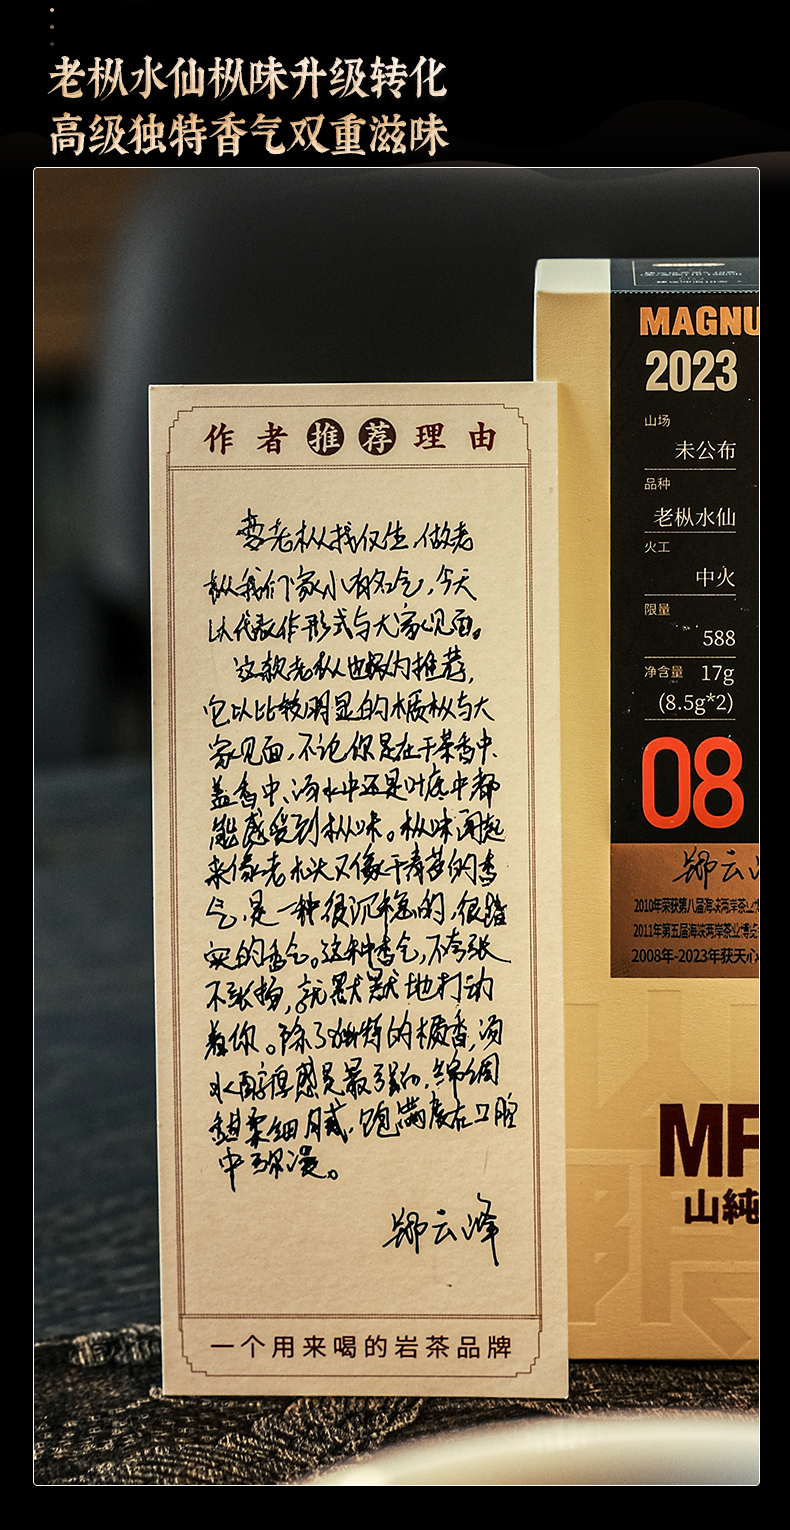 老枞水仙枞味升级转化
高级独特香气双重滋味
作者推荐理由
要老枞找仅生,做老
枞我们家小有名气,今天
以代表作形式与大家见面。
这款老枞也极为推荐,
它以比较明显的木质枞与大
家见面,不论你是在干茶香中、
盖香中、汤水中还是叶底中都
能感受到枞味。枞味闻起
来像老木头又像干青苔的香
气,是一种很沉稳的,很踏
实的香气。这种香气,不夸张
不张扬,就默默地打动
着你。除了独特的木质香,汤
水醇厚感是最强的,绵绸
柔细腻,饱满度在口腔
中弥漫。
郑云峰
一个用来喝的岩茶品牌
MAGNU
2023
山场
未公布
品种
老枞水仙
火工
中火
限量
588
净含量 17g
(8.5g*2)
08
郑云
2010年荣获第八届海峡两岸茶业
2011年第五届海峡两岸茶业博览
2008年-2023年获天心
MF
山純